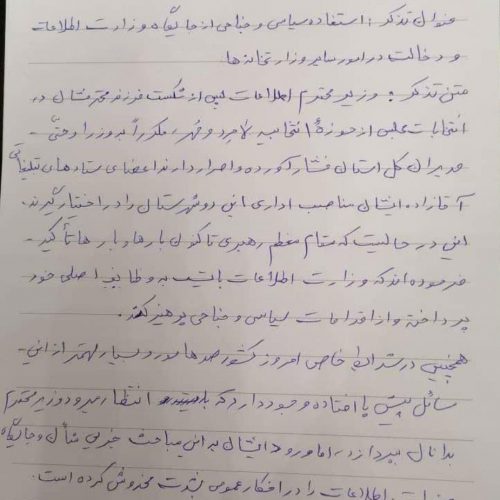 عنوان تذکر: استفاده سیاسی و جناحی از جایگاه وزارت اطلاعات
و دخالت در امور سایر وزارتخانه‌ها
متن تذکر: وزیر محترم اطلاعات پس از شکست فرزند محترمشان در
انتخابات مجلس از حوزهٔ انتخابیه لامرد و مُهر، مکرراً به وزرا و حتی
مدیران کل استان فشار آورده و اصرار دارند اعضای ستادهای تبلیغاتی
آقازاده ایشان مناصب اداری این دو شهرستان را در اختیار گیرند.
این در حالیست که مقام معظم رهبری تاکنون بارها و بارها تأکید
فرموده‌اند که وزارت اطلاعات بایستی به وظایف اصلی خود
پرداخته و از اقدامات سیاسی و جناحی پرهیز کند.
همچنین در شرایط خاص امروز کشور صدها مورد بسیار مهمتر از این
مسائل پیش پا افتاده وجود دارد که انتظار میرود وزیر محترم
بدانان بپردازد، اما ورود ایشان به این مباحث جزیی شأن و جایگاه
وزارت اطلاعات را در افکار عمومی بشدت مخدوش کرده است.